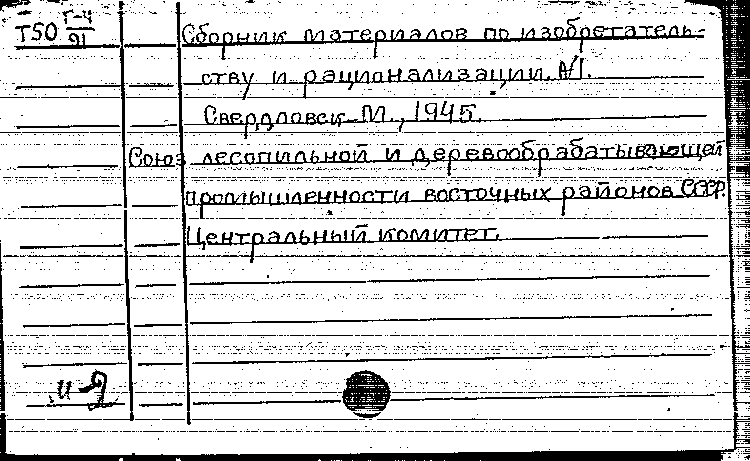 Т50 Г-4 Сборник материалов по изобретатель-
91
ству и рационализации. №1.
Свердловск-М., 1945.
Союз лесопильной и деревообрабатывающей
промышленности восточных районов СССР.
Центральный комитет.